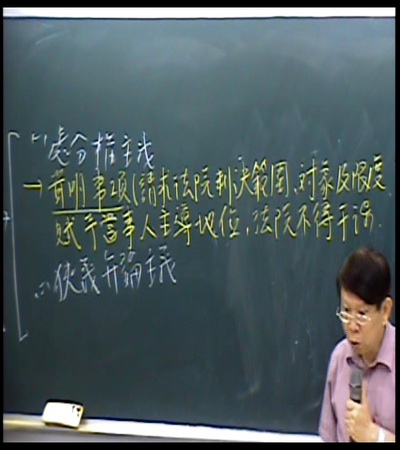 (1) 處分權主義
→聲明事項(請求法院判決範圍、對象及限度
賦予當事人主導地位,法院不得干涉.
(2) 狹義辯論主義